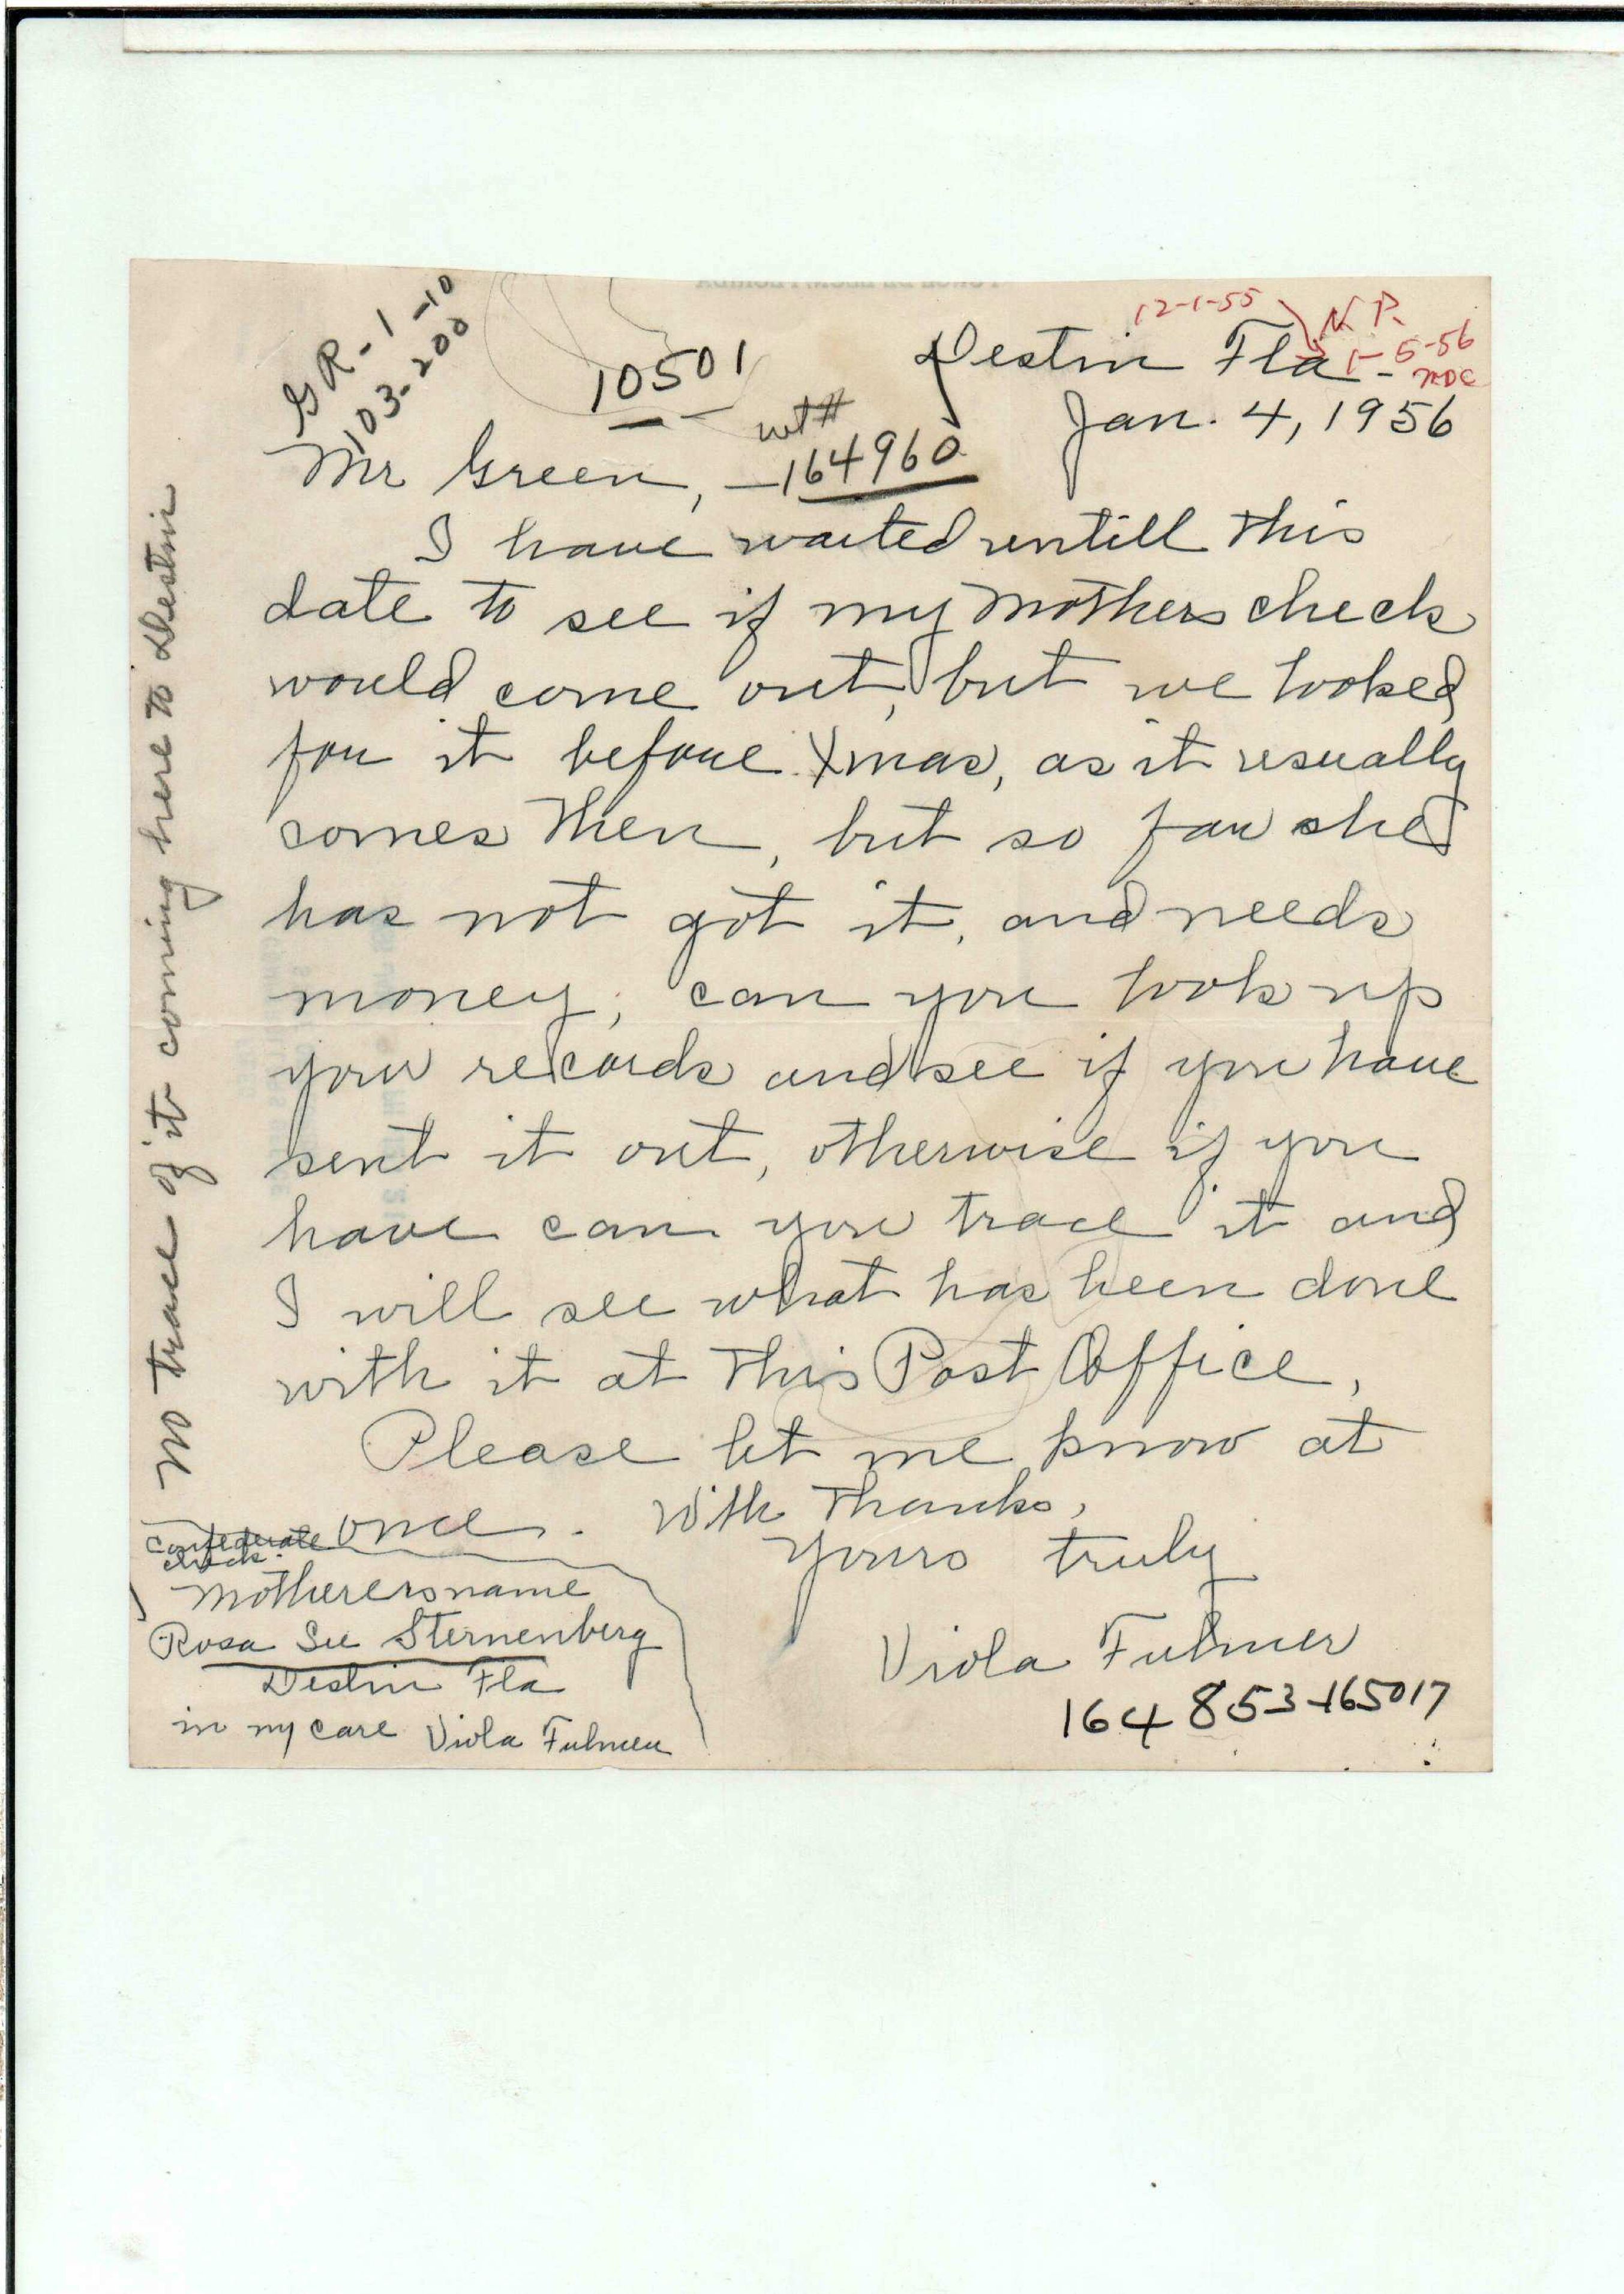 GR-1-10
103-200
10501
12-1-55
N.P.
1-5-56
MDC
Destin Fla-
Jan. 4, 1956
wt#
Mr Green, -164960
I have waited untill this
date to see if my Mothers check
would come out, but we looked
for it before Xmas, as it usually
comes then, but so far she
has not got it, and needs
money; can you look up
your records and see if you have
sent it out, otherwise if you
have can you trace it and
I will see what has been done
with it at this Post Office,
Please let me know at
once. With Thanks,
Yours truly
Viola Fulmer
164853-165017
Confederate
check.
Motherersname
Rosa See Sternenberg
Destin Fla
in my care Viola Fulmer
No trace of it coming here to Destin